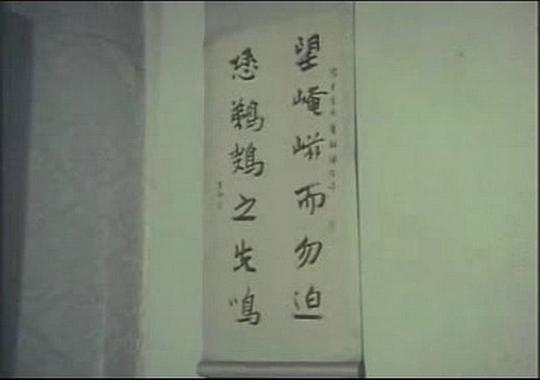 望崦嵫而勿迫
恐鵜鴂之先鳴